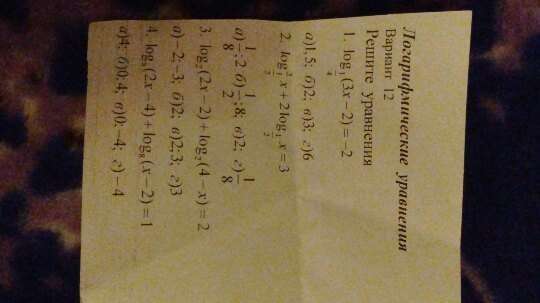 Логарифмические уравнения
Вариант 12
Решите уравнения
1. log_{1/4}(3x − 2) = −2
а)1,5; б)2; в)3; г)6
2. log²_{1/2} x + 2log_{1/2} x = 3
а)1/8; 2 б)1/2; 8; в)2; г)1/8
3. log₂(2x − 2) + log₂(4 − x) = 2
а) − 2; −3; б)2; в)2; 3; г)3
4. log₈(2x − 4) + log₈(x − 2) = 1
а)4; б)0;4; в)0; −4; г) − 4